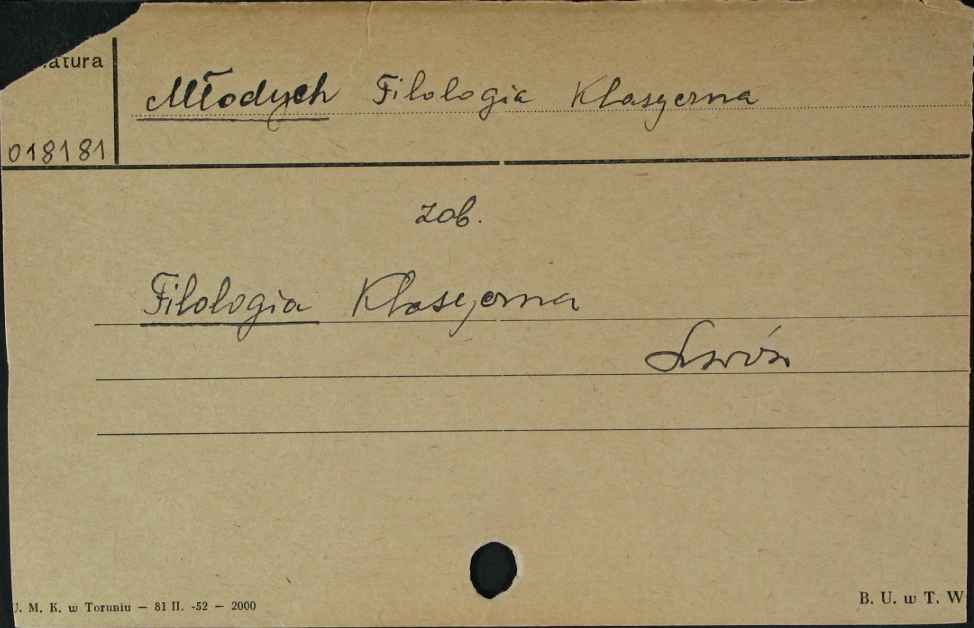 atura
Młodych Filologia Klasyczna
018181
zob.
Filologia Klasyczna
Lwów
U. M. K. w Toruniu — 81 II. -52 — 2000
B. U. w T. W